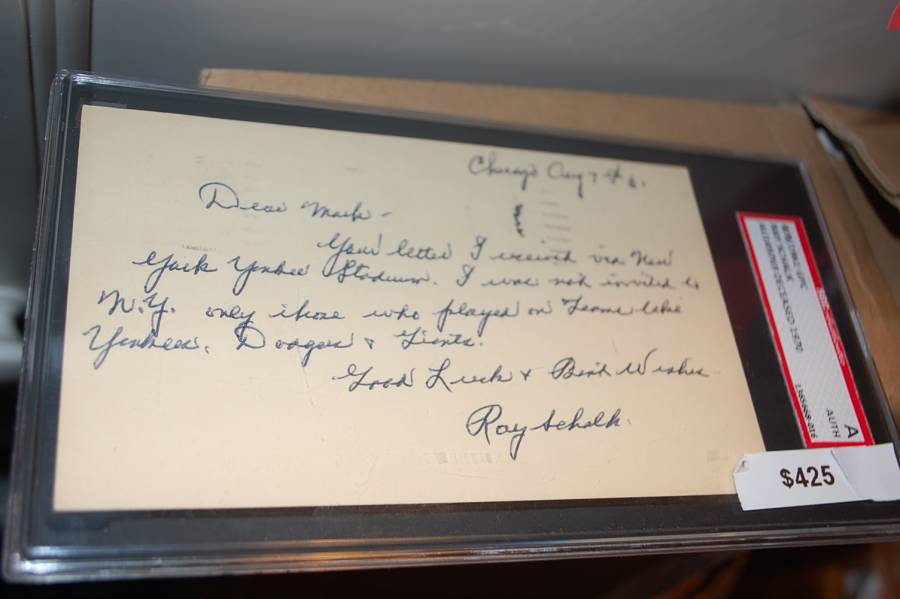 Chicago Aug 7th 61.
Dear Mark -
Your letter I receivd via New
York Yankee Stadium. I was not invited to
N.Y. only those who played on Teams like
Yankees, Dodgers & Giants.
Good Luck & Best Wishes
Ray Schalk.
RAY SCHALK
DECEASED 1970
A
AUTH
$425